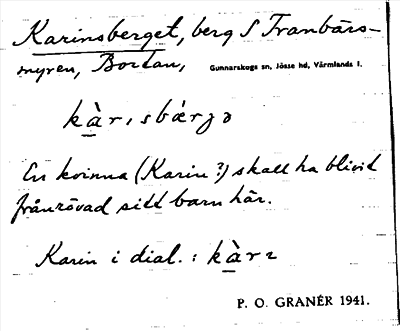 Karinsberget, berg S Tranbärs-
myren, Bortan, Gunnarskogs sn, Jösse hd, Värmlands l.
kàrısbǽrgə
En kvinna (Karin?) skall ha blivit
frånrövad sitt barn här.
Karin i dial. : kàrı
P. O. GRANÉR 1941.